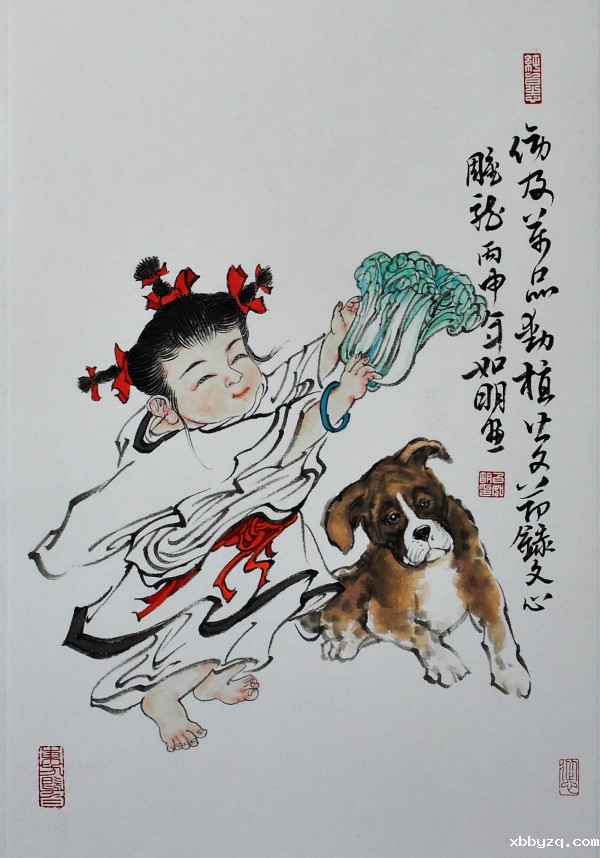 傍及萬品動植皆文節錄文心
雕龍丙申年如明畫
xbbyzq.com